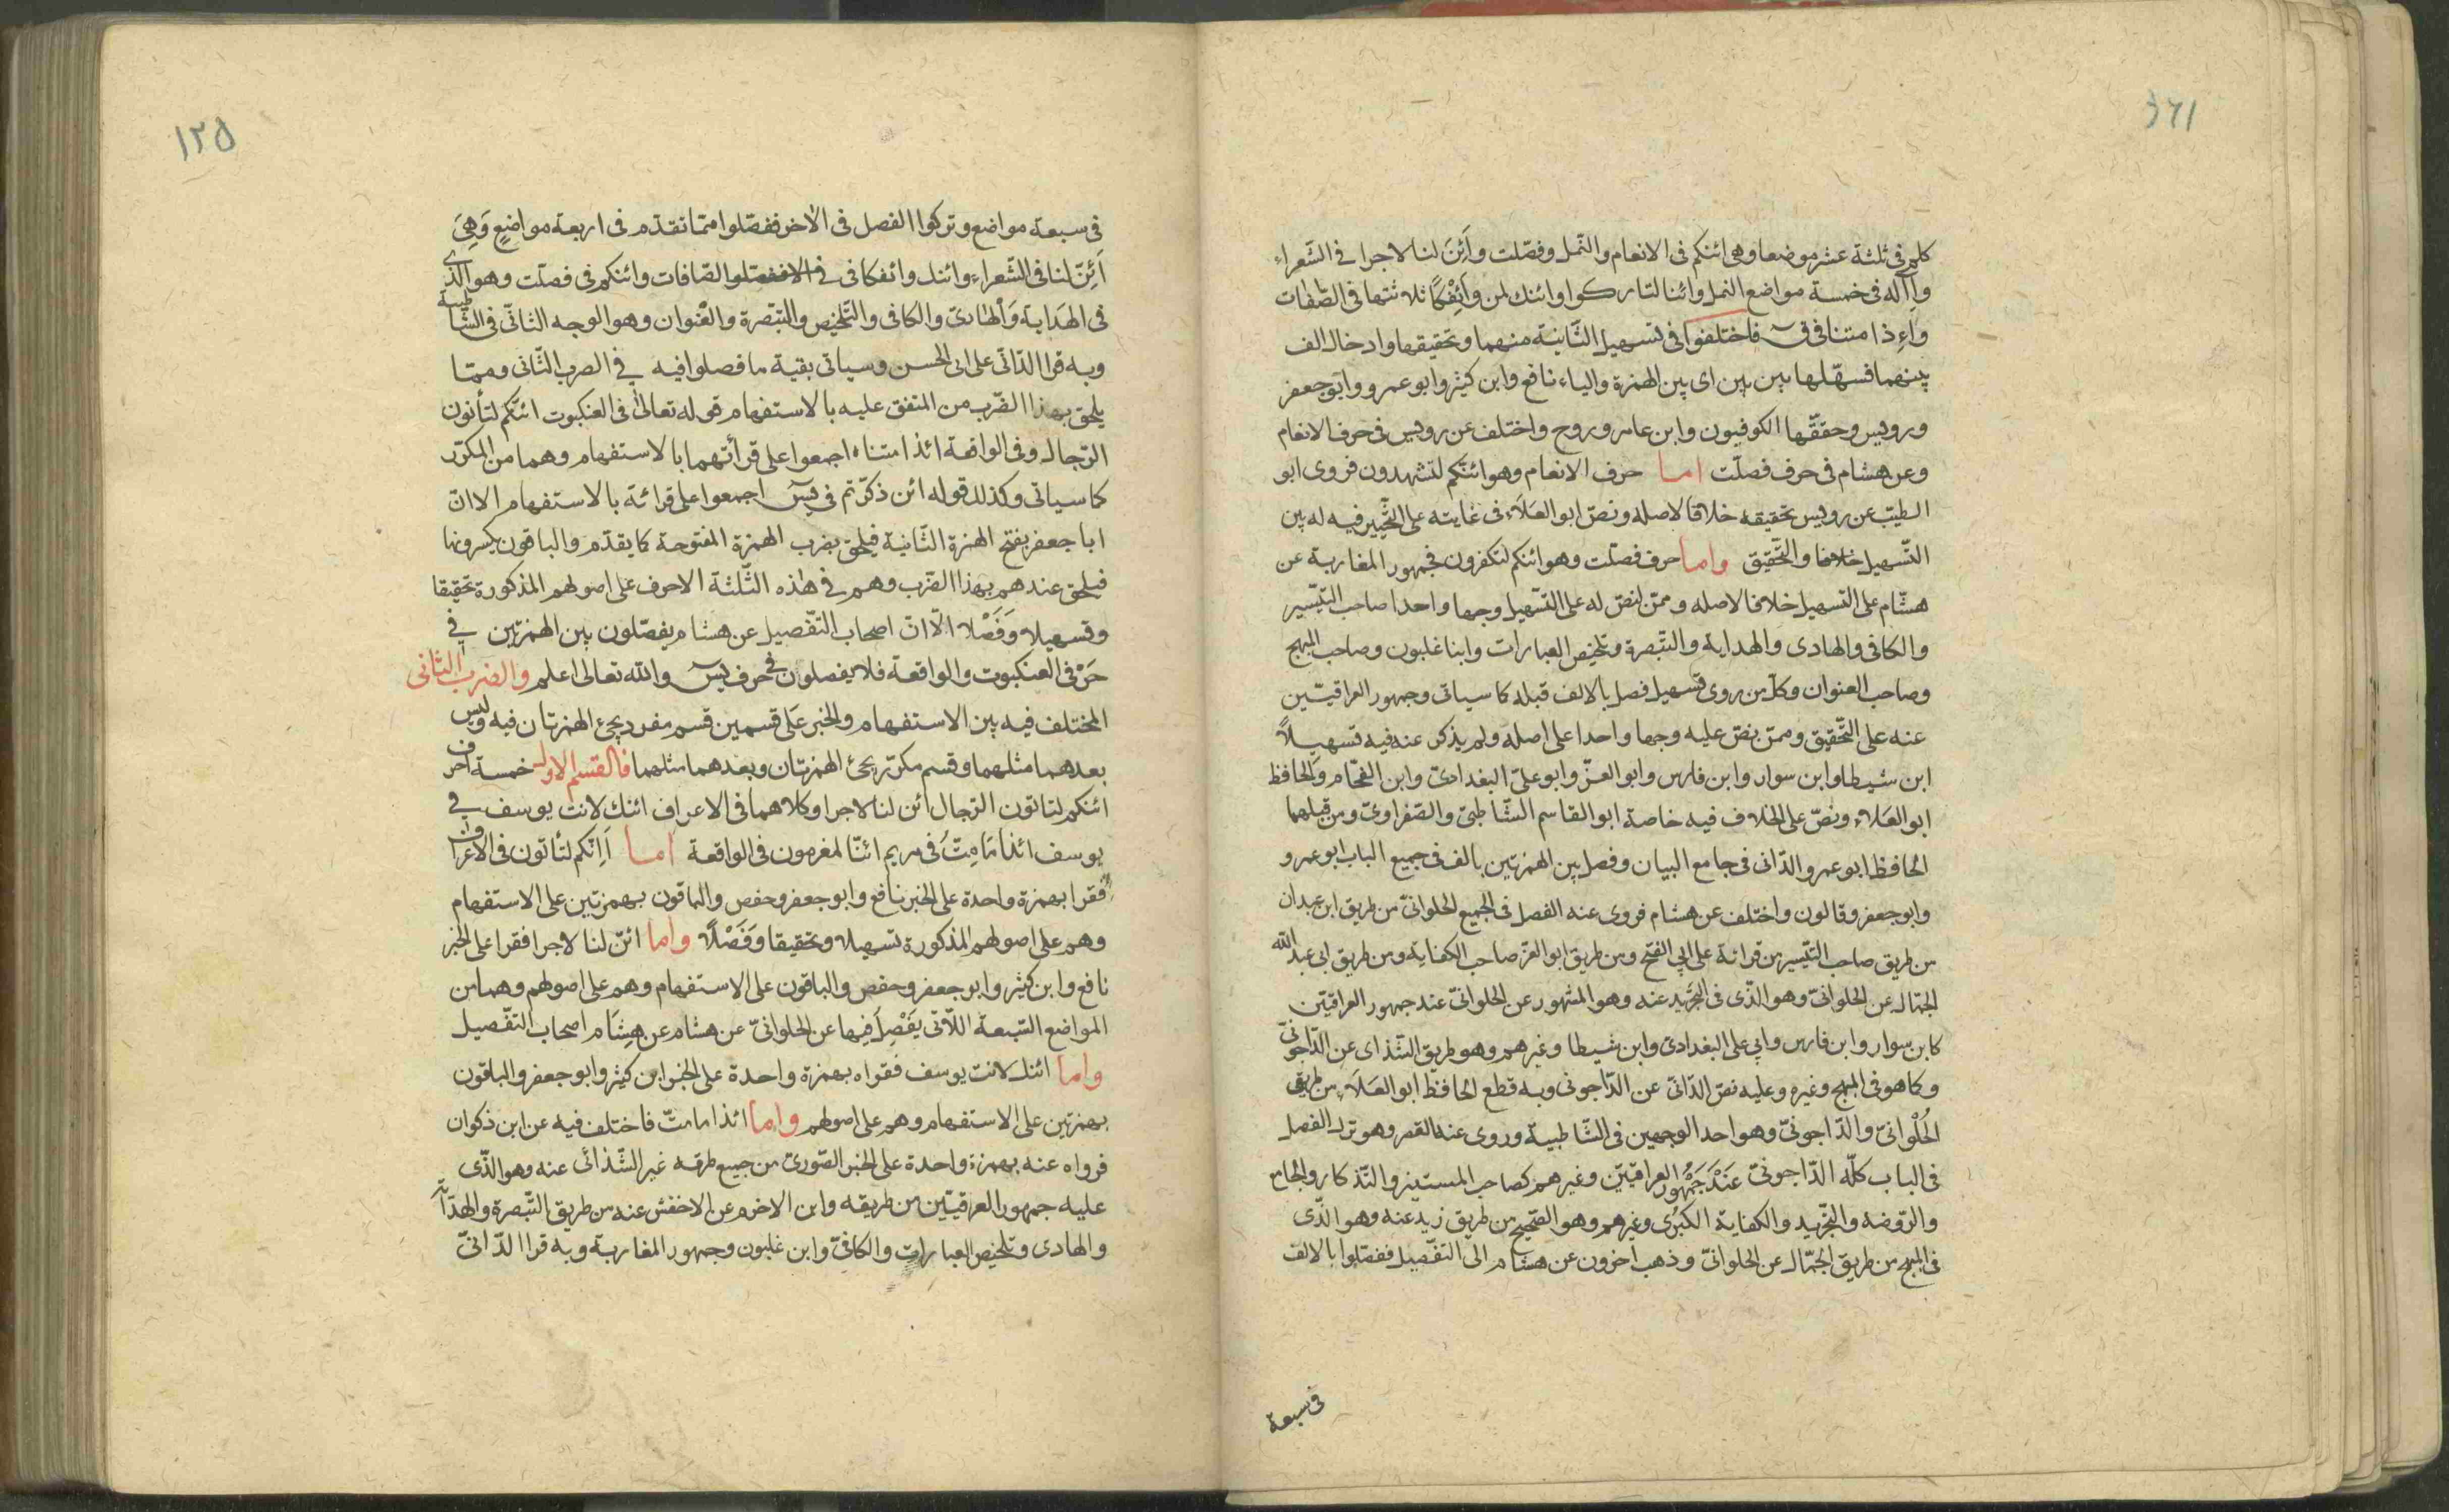 ١٢٤
كلم فى ثلثة عشر موضعا وهى ائنكم فى الانعام والنّمل وفصّلت وأَئِنَ لنا لاجرا فى الشّعراء
وأاله فى خمسة مواضع النمل وائنا لتاركوا وائنك لمن وَأَئِفْكًا ثلاثتها فى الصّافات
وأءِذا متنا فى ق فاختلفوا فى تسهيل الثّانية منهما وتحقيقها وادخال الف
بينهما فسهّلها بين بين اى بين الهمزة والياء نافع وابن كثير وابو عمرو وابو جعفر
ورويس وحققّها الكوفيون وابن عامر وروح واختلف عن رويس فى حرف الانعام
وعن هشام فى حرف فصلّت اما حرف الانعام وهو ائنّكم لتشهدون فروى ابو
الطيّب عن رويس تحقيقه خلافا لاصله ونصّ ابو العَلَاء فى غايته على التّخيير فيه له بين
التّسهيل خلافا والتّحقيق واما حرف فصلت وهو ائنكم لتكفرون فجمهور المغاربة عن
هشّام على التسهيل خلافا لاصله وممّن نصّ له على التسّهيل وجها واحدا صاحب التيّسير
والكافى والهادى والهداية والتبّصرة وتلخيص العبارات وابنا غلبون وصاحب المبهج
وصاحب العنوان وكلّ من روى تسهيله فصل بالالف قبله كما سياتى وجمهور العراقيّين
عنه على التّحقيق وممّن نصّ عليه وجها واحدا على اصله ولم يذكر عنه فيه تسهيلًا
ابن شيطا وابن سوار وابن فارس وابو العزّ وابو علىّ البغدادىّ وابن الفحّام والحافظ
ابو العَلَاء ونصّ على الخلاف فيه خاصة ابو القاسم الشّاطبىّ والصّفراوىّ ومن قبلهما
الحافظ ابو عمرو الدّانى فى جامع البيان وفصل بين الهمزتين بالف فى جميع الباب ابو عمرو
وابو جعفر وقالون واختلف عن هشام فروى عنه الفصل فى الجميع الحلوانىّ من طريق ابن عبدان
من طريق صاحب التيّسير من قرائة على ابى الفتح ومن طريق ابو العزّ صاحب الكفاية ومن طريق ابى عبد اللّه
الجمّال عن الحلوانىّ وهو الذّى فى التجريد عنه وهو المشهور عن الحلوانىّ عند جمهور العراقيّين
كابن سوار وابن فارس وابى على البغدادىّ وابن شيطا وغيرهم وهو طريق الشّذاى عن الدّاجونىّ
وكما هو فى المبهج وغيره وعليه نصّ الدّانىّ عن الدّاجونى وبه قطع الحافظ ابو العَلَاء من طريق
الحُلْوانىّ والدّاجونىّ وهو احد الوجهين فى الشّاطبية وروى عنه القصر وهو ترك الفصل
فى الباب كلّه الدّاجونىّ عَنْدَ جَمْهُور العراقيّين وغيرهم كصاحب المستنير والتّذكار والجامع
والرّوضه والتجّريد والكفاية الكبرى وغيرهم وهو الصّحيح من طريق زيد عنه وهو الذّى
فى المبهج من طريق الجمّال عن الحلوانىّ وذهب اخرون عن هشام الى التفّصيل ففصّلوا بالالف
فى سبعة
١٢٥
فى سبعة مواضع وتركوا الفصل فى الاخر ففصّلوا ممّا تقدّم فى اربعة مواضعٍ وَهِىَ
أَئِنّ لنا فى الشّعراء وائنك وائفكا فى فى الاففصّلوا الصّافات وائنكم فى فصلّت وهو الذّى
فى الهَداية وَالْهَادىّ والكافى والتّلخيص والتبّصرة والْعُنوان وهو الوجه الثانىّ فى الشّاطبية
وبه قرا الدّانىّ على ابى الحسن وسياتى بقية ما فصلوا فيه فى الضرب الثّانى وممّا
يلحق بهذا الضّرب من المتفق عليه بالاستفهام قوله تعالىٰ فى العنكبوت ائنّكم لتأتون
الرّجال وفى الواقعة ائذا متناه اجمعوا على قرأتهما بالاستفهام وهما من المكرّر
كما سياتى وكذلك قوله ائن ذكرّتم فى يسٓ اجمعوا على قرائة بالاستفهام الا انّ
ابا جعفر بفتح الهنزة الثّانية فيلحق بضرب الهمزة المفتوحة كما يقدّم والباقون بكسرونها
فيلحق عندهم بهذا الضّرب وهم فى هٰذه الثّلثة الاحرف على اصولهم المذكورة تحقيقا
وتسهيلا وَفَصْلا الّا انّ اصحاب التفّصيل عن هشام يفصّلون بين الهمزتين فى
حَرْفى العنكبوت والواقعة فلا يفصلون فى حرف يسٓ واللّه تعالى اعلم والضرب الثانى
المختلف فيه بين الاستفهام والخبر عَلى قسمين قسم مفرد يجئ الهمزتان فيه وليس
بعدهما مثلهما وقسم مكرّر يجئ الهمزتان وبعدهما مثلهما فالقسم الاول خمسة احرف
ائنكم لتاتون الرّجال ائن لنا لاجرا وكلاهما فى الاعراف ائنك لانت يوسف فى
يوسف ائذا مَا مِتُّ فى مريم ائنّا لمغرمون فى الواقعة اما أَاِنّكم لتأتون فى الاعراف
فقرا بهمزة واحدة على الخبر نافع وابو جعفر وحفص والباقون بهمزتين على الاستفهام
وهم على اصولهم المذكورة تسهيلا وتحقيقا وَفَصْلًا واما ائنّ لنا لاجرا فقرا على الخبر
نافع وابن كثير وابو جعفر وحفص والباقون على الاستفهام وهم على اصولهم وهما من
المواضع السّبعة اللّاتى يَفْصِلَ فيها عن الحلوانىّ عن هشام عن هِشَام اصحاب التفّصيل
واما ائنك لانت يوسف فقراه بهمزة واحدة على الخبر ابن كثير وابو جعفر والباقون
بهمزتين على الاستفهام وهم على اصولهم واما ائذا ما متّ فاختلف فيه عن ابن ذكوان
فرواه عنه بهمزة واحدة على الخبر الصّورىّ من جميع طرقه غير الشّذائى عنه وهو الذّى
عليه جمهور العرقيّين من طريقه وابن الاخرم عن الاخفش عنه من طريق التّبصرة والهداية
والهادى وتلخيص العبارات والكافىّ وابن غلبون وجمهور المغاربة وبه قرا الدّانىّ